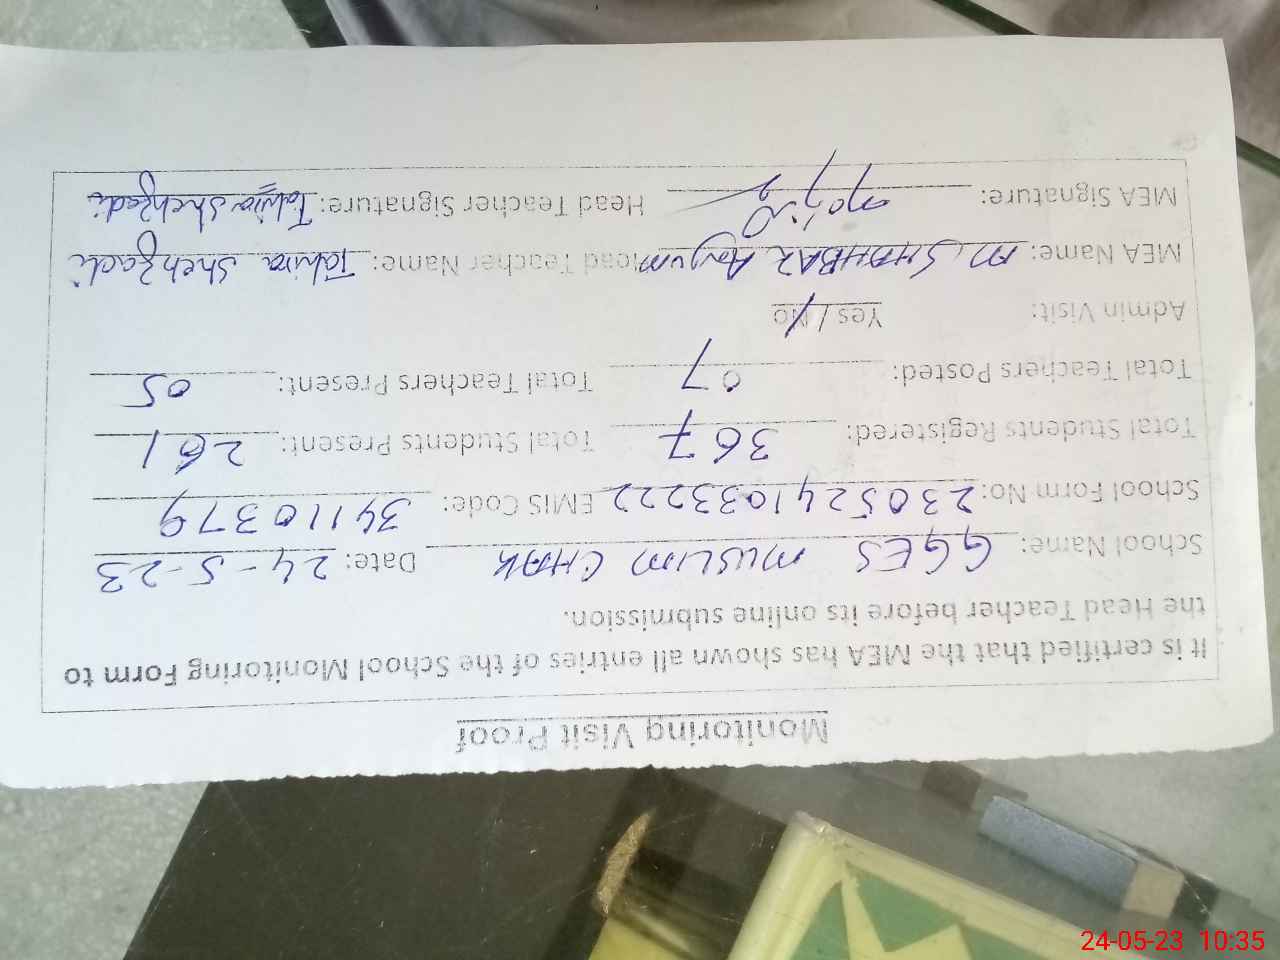 Monitoring Visit Proof
It is certified that the MEA has shown all entries of the School Monitoring Form to
the Head Teacher before its online submission.
School Name: GGES MUSLIM CHAK Date: 24-5-23
School Form No: 2305241033222 EMIS Code: 34110379
Total Students Registered: 367 Total Students Present: 261
Total Teachers Posted: 07 Total Teachers Present: 05
Admin Visit: Yes / No
MEA Name: M SHAHBAZ Anjum Head Teacher Name: Tahira Shehzadi
MEA Signature: Head Teacher Signature: Tahira Shehzadi
24-05-23 10:35